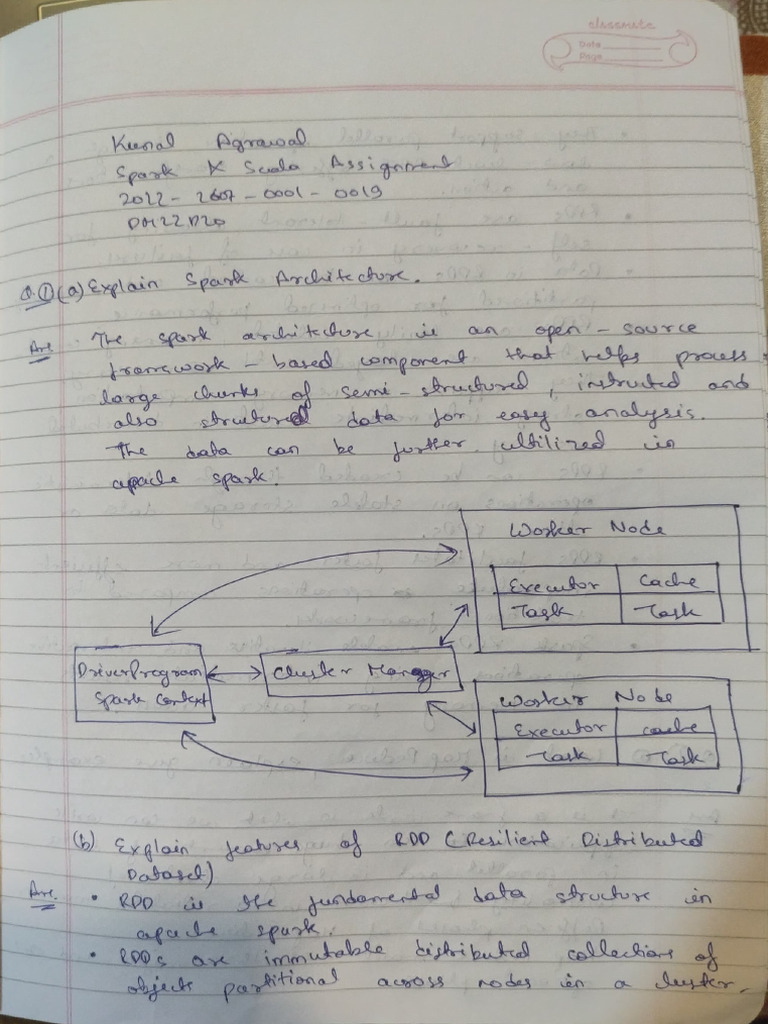 classmate
Date
Page
Kunal Agrawal
Spark X Scala Assignment
2022-2607-0001-0019
DH22D20
Q.1 (a) Explain Spark Architecture.
Ans. The spark architecture is an open-source
framework-based component that helps process
large chunks of semi-structured, instructed and
also structured data for easy analysis.
The data can be further ultilized in
apache spark.
Worker Node
Executor Cache
Task Task
Driver Program
Spark Context
Cluster Manager
Worker Node
Executor cache
Task Task
(b) Explain features of RDD (Resilient Distributed
Dataset)
Ans. • RDD is the fundamental data structure in
apache spark.
• RDDs are immutable distributed collections of
objects partitional across nodes in a cluster.